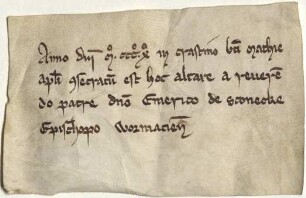 Anno dni M. CCC. X in crastino bti Mathie
apli ɔsecratu est hoc altare a reveren
do patre dno Emerico de sconecke
Epischopo Wormacien